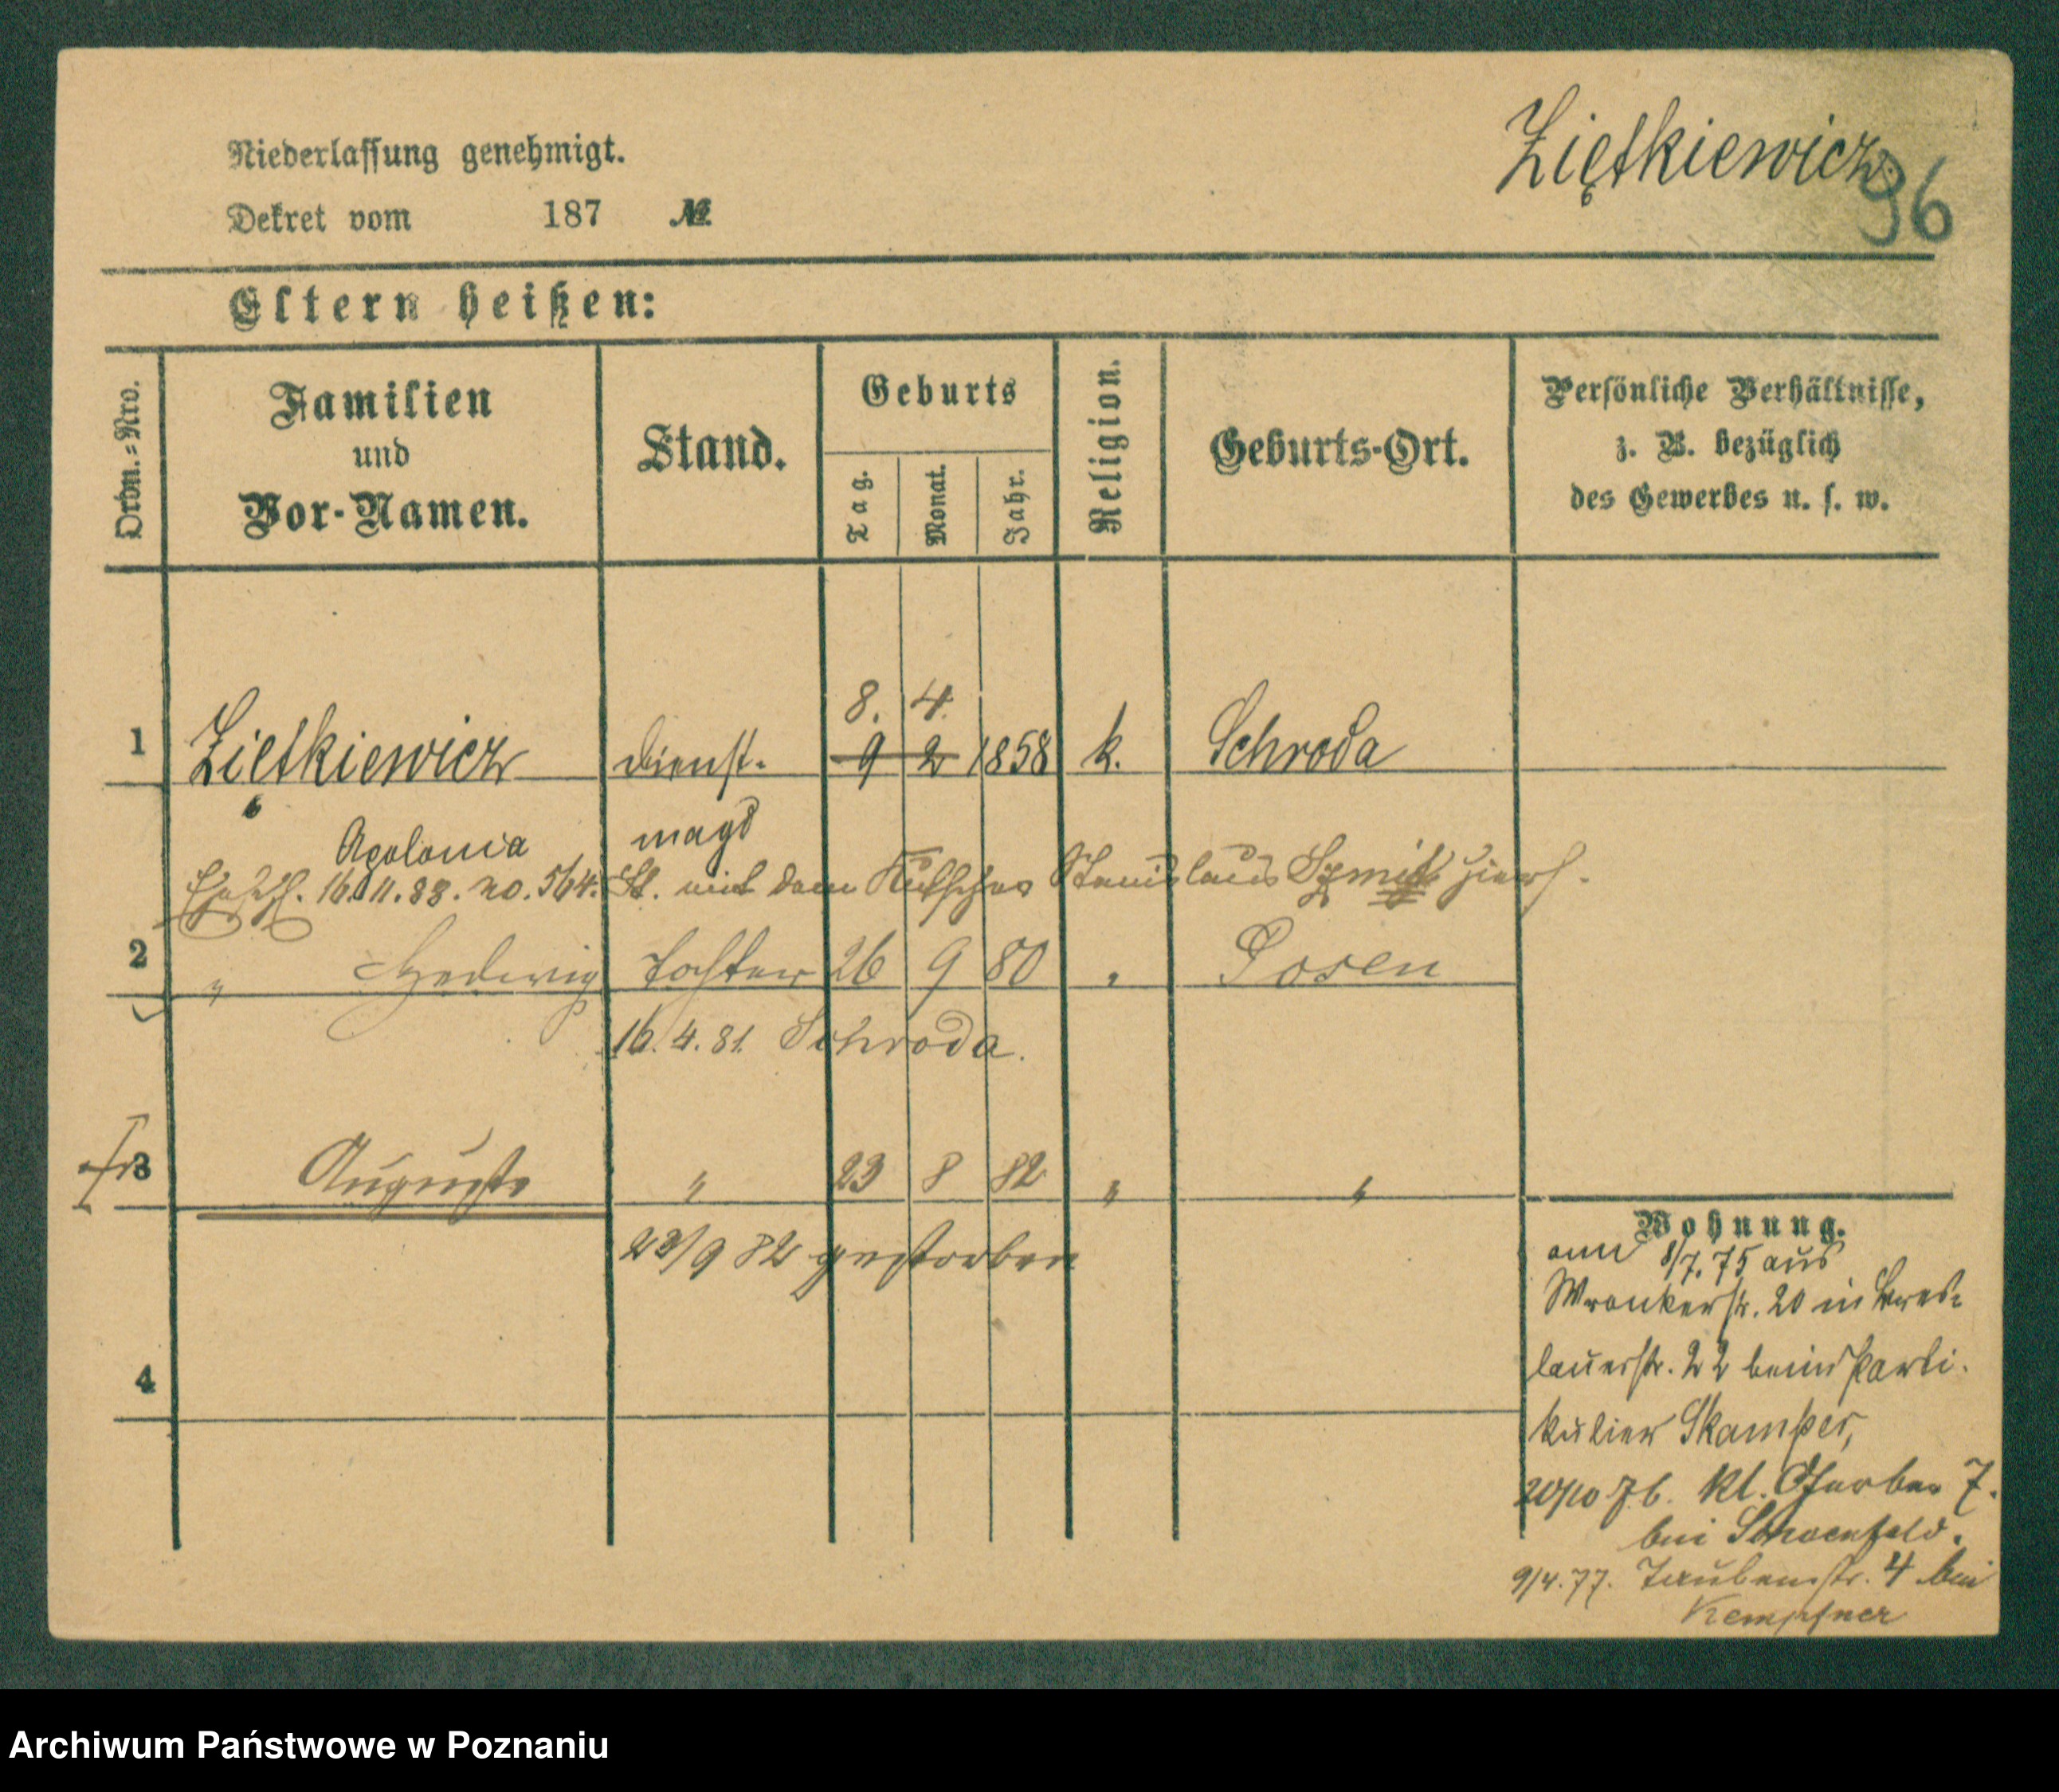 Niederlassung genehmigt.
Ziętkiewicz
96
Dekret vom 187 №
Eltern heißen:
Ordn.=Nro.
Familien und Vor-Namen.
Stand.
Geburts
Tag.
Monat.
Jahr.
Religion.
Geburts-Ort.
Persönliche Verhältnisse,
z. B. bezüglich
des Gewerbes u. s. w.
8. 4.
1 Ziętkiewicz Dienst- 9 2 1858 k. Schroda
Apolonia magd
16.11.88. no. 564. mit dem Kutscher Stanislaus Szmit
2 " Hedwig Tochter 26 9 80 " Posen
16.4.81. Schroda.
3 Auguste " 23 8 82 " "
23/9 82 gestorben
4
Wohnung.
8/7.75 aus
Wronkerstr. 20 in Bres-
lauerstr. 22 beim Parti-
kulier Skamper,
20/10 76. Kl. Gerber 7.
bei Schoenfeld.
9/4.77. Taubenstr. 4 bei
Kempfner
Archiwum Państwowe w Poznaniu